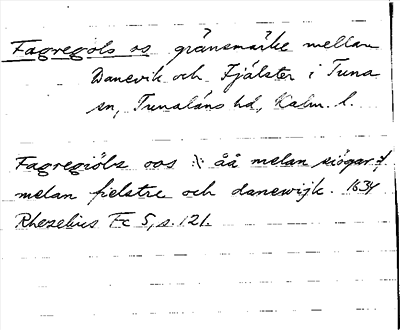 Fagregöls os gränsmärke mellan
Danevik och Fjälster i Tuna
sn, Tunaläns hd, Kalm. l.
Fagregiöls oos :/: åå melan siögar :/:
melan fielstre och danewijk. 1634
Rhezelius Fc 5, s. 121.